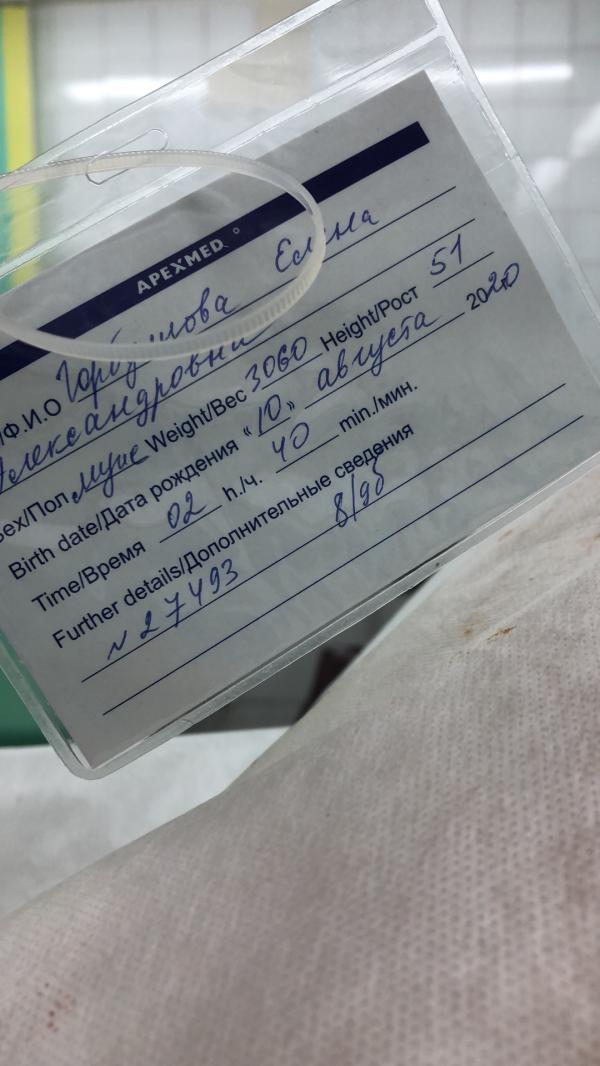 APEXMED
/Ф.И.О Елена
Александровна
Sex/Пол муж Weight/Вес 3060 Height/Рост 51
Birth date/Дата рождения «10» августа 2020
Time/Время 02 h./ч. 40 min./мин.
Further details/Дополнительные сведения
N 27493 8/9б